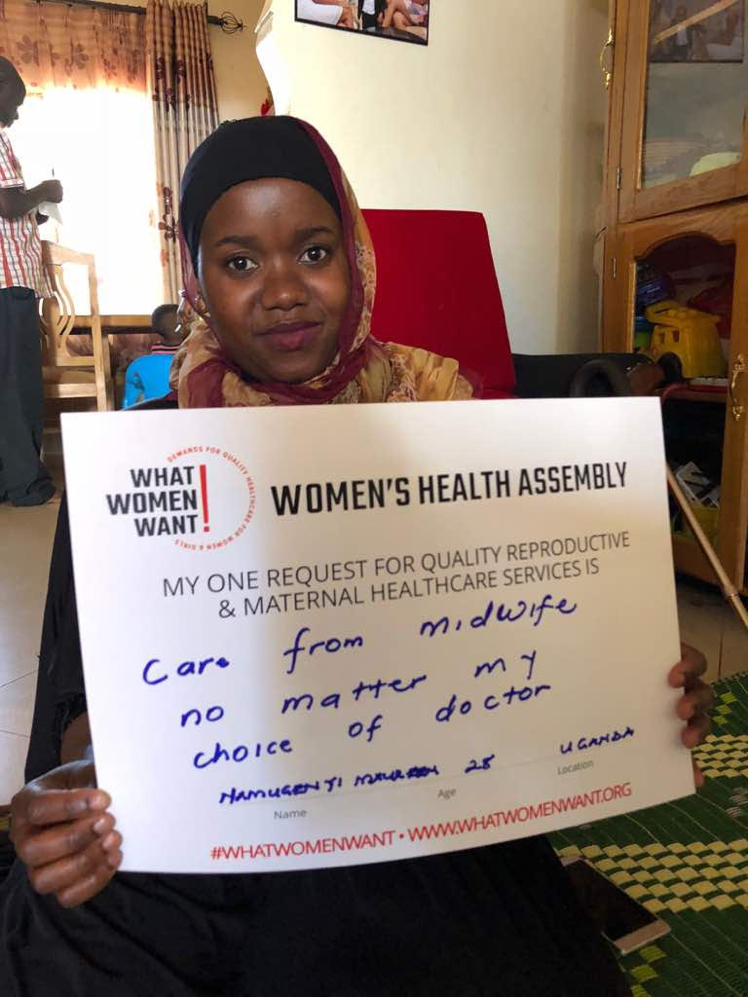 WHAT
WOMEN
WANT!
DEMANDS FOR QUALITY HEALTHCARE FOR WOMEN & GIRLS
WOMEN'S HEALTH ASSEMBLY
MY ONE REQUEST FOR QUALITY REPRODUCTIVE
& MATERNAL HEALTHCARE SERVICES IS
Care from midwife
no matter my
choice of doctor
NAMUGENYI MAUREEN 28 UGANDA
Name Age Location
#WHATWOMENWANT • WWW.WHATWOMENWANT.ORG